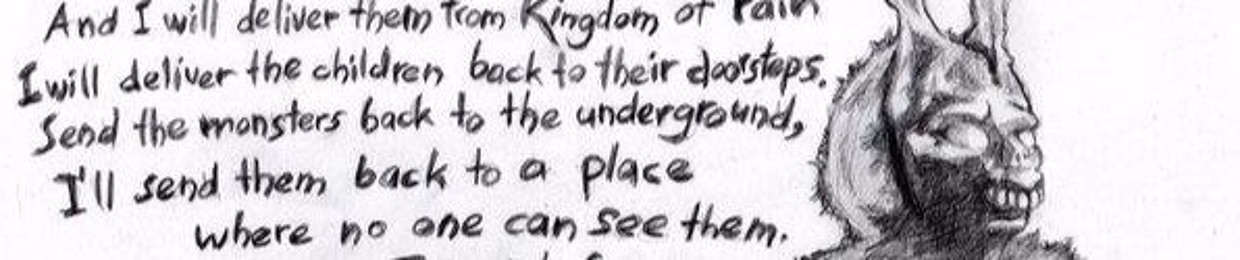 And I will deliver them from Kingdom of Pain
I will deliver the children back to their doorsteps.
Send the monsters back to the underground,
I'll send them back to a place
where no one can see them.